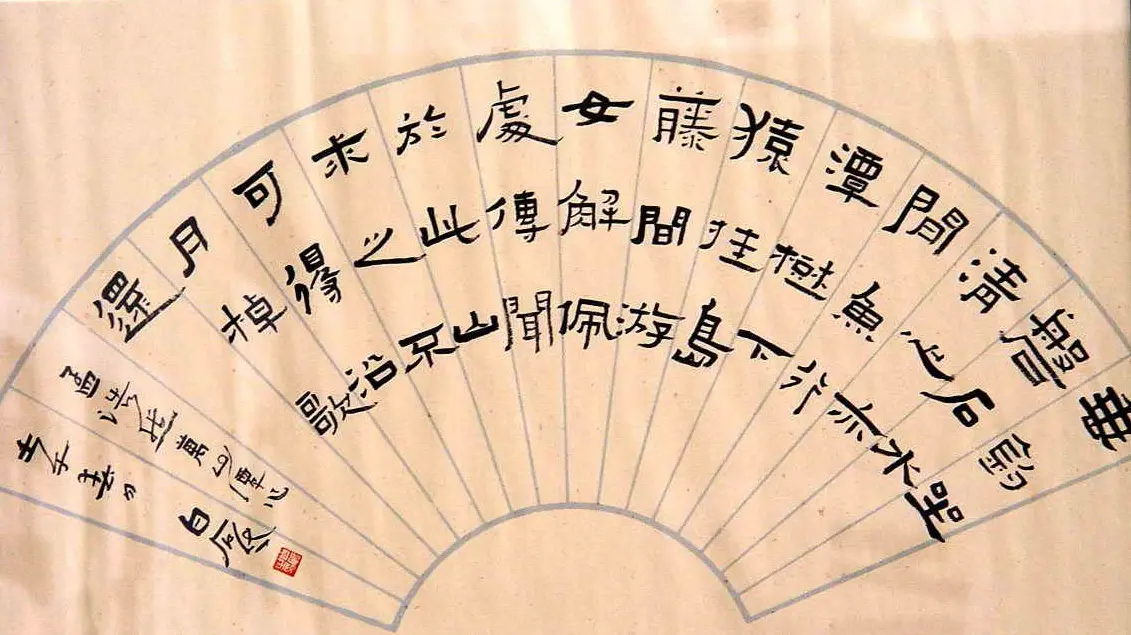 垂釣坐
盤石水
清心亦
閒魚行
潭樹下
猿挂島
藤間游
女解佩
處傳聞
於此山
求之不
可得沿
月棹歌
還
孟浩然萬山潭作
春日 白